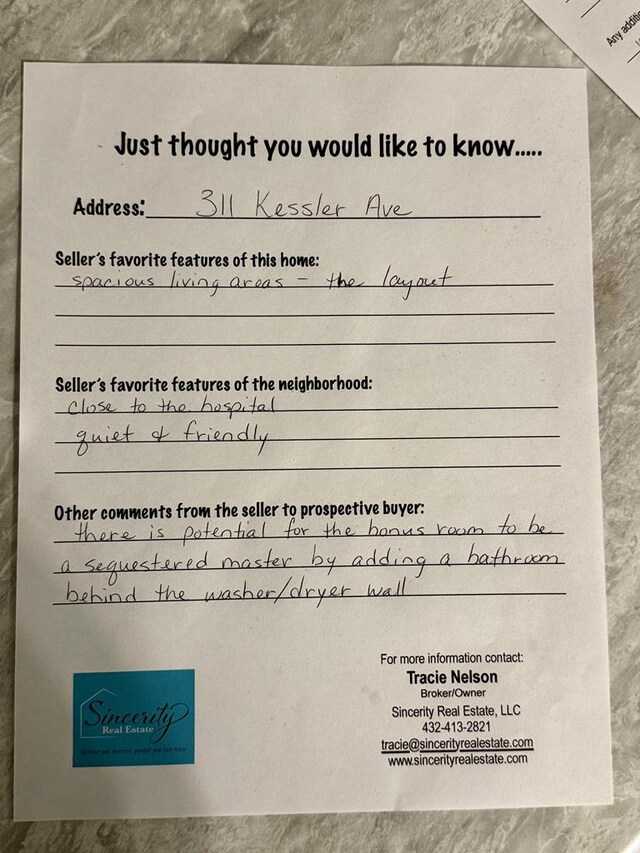 Any additio
Just thought you would like to know.....
Address: 311 Kessler Ave
Seller's favorite features of this home:
spacious living areas – the layout
Seller's favorite features of the neighborhood:
close to the hospital
quiet & friendly
Other comments from the seller to prospective buyer:
there is potential for the bonus room to be
a sequestered master by adding a bathroom
behind the washer/dryer wall
For more information contact:
Tracie Nelson
Broker/Owner
Sincerity Real Estate, LLC
432-413-2821
tracie@sincerityrealestate.com
www.sincerityrealestate.com
Sincerity
Real Estate